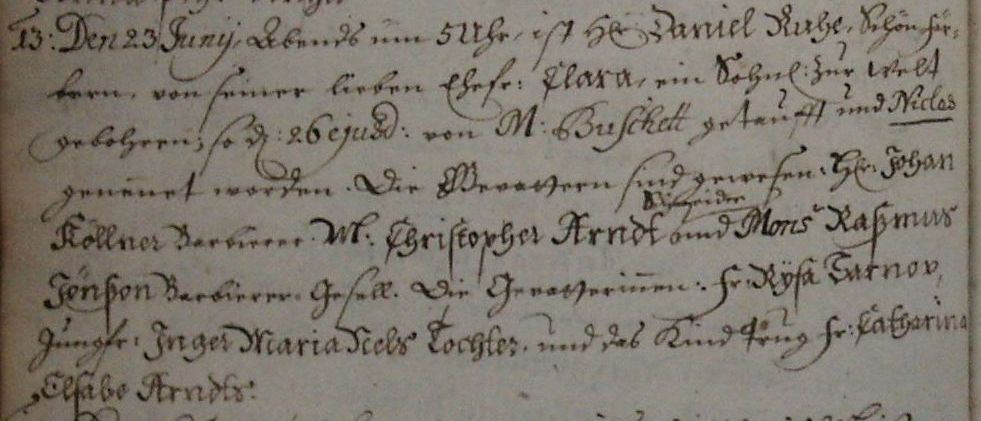 13: Den 23 Junij, Abends um 5 Uhr, ist H: Daniel Ruhe, Schönfär-
bern, von seiner lieben Ehefr: Clara, ein Söhnl: zur Welt
gebohren; so d: 26 ejusd: von M: Buschett getaufft und Niclas
genennet worden. Die Gevattern sind gewesen: H: Johan
Schneider
Köllner Barbierer. M: Christopher Arndt und Mons Raßmus
Jönßon Barbierer-Gesell. Die Gevatterinnen: Fr: Rysa Tarnov,
Jungfr: Inger Maria Tochter, und das Kind trug Fr: Catharina
Elsabe Arndts: